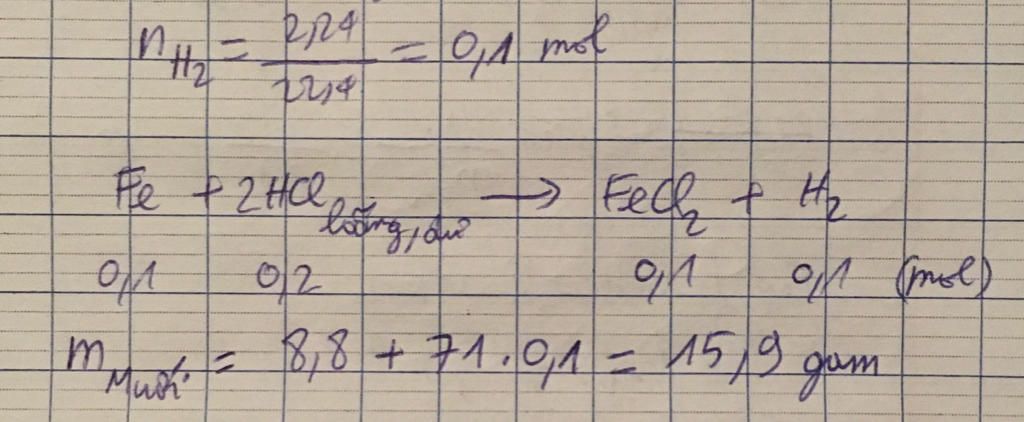 n H₂ = 2,24 / 22,4 = 0,1 mol
Fe + 2HCl loãng, dư → FeCl₂ + H₂
0,1 0,2 0,1 0,1 (mol)
m muối = 8,8 + 71.0,1 = 15,9 gam